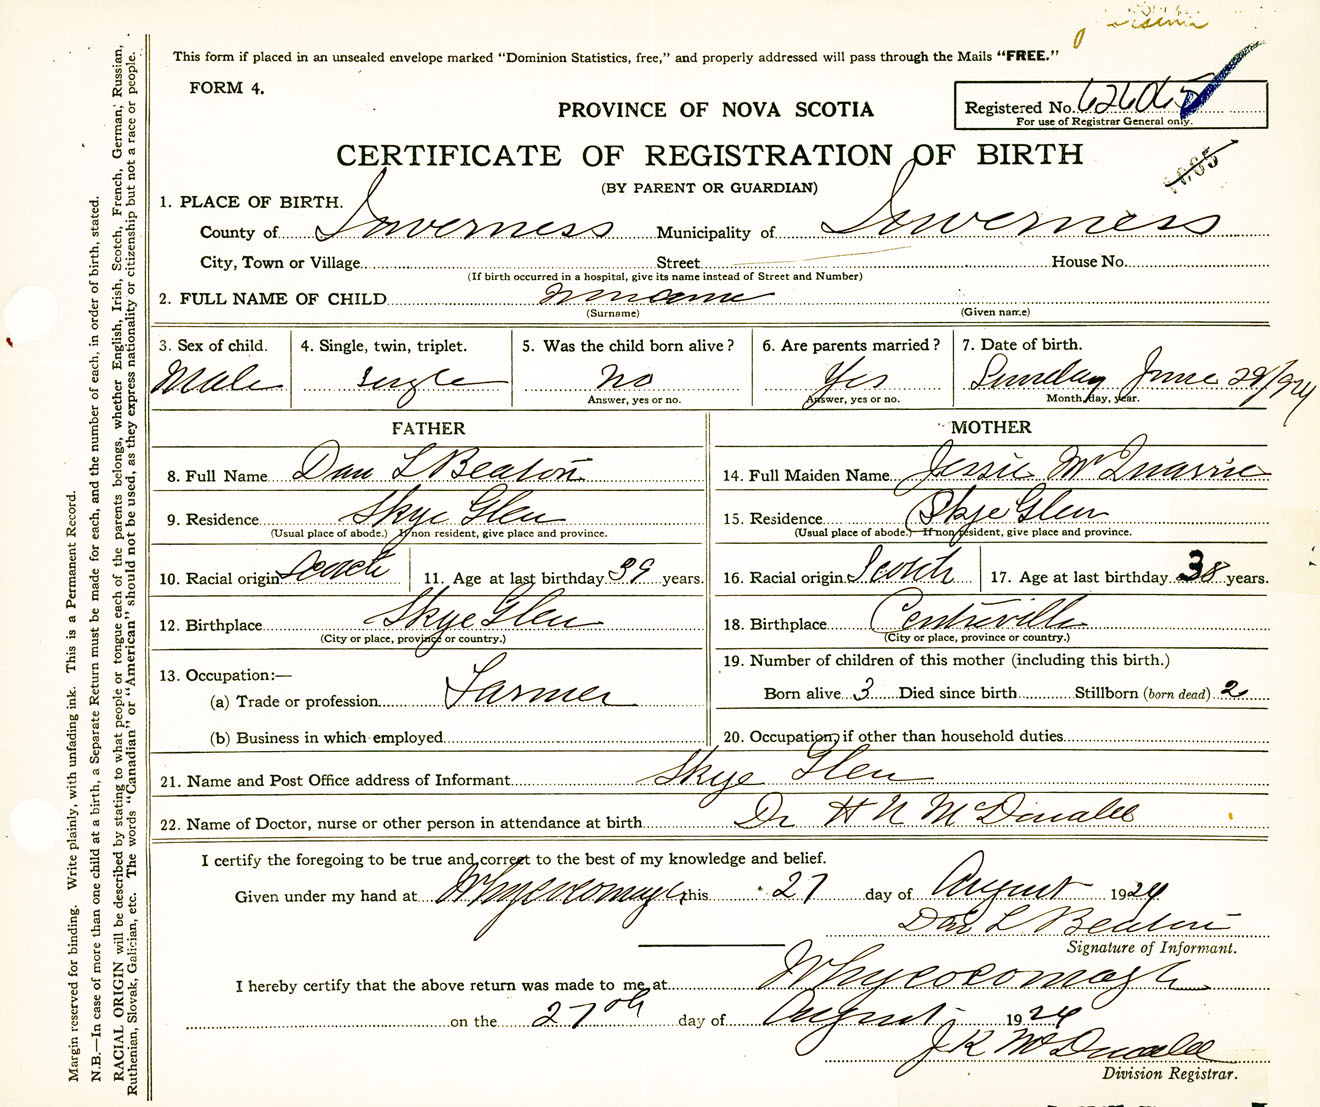 This form if placed in an unsealed envelope marked "Dominion Statistics, free," and properly addressed will pass through the Mails "FREE."
FORM 4.
PROVINCE OF NOVA SCOTIA
Registered No. 62605
For use of Registrar General only.
CERTIFICATE OF REGISTRATION OF BIRTH
(BY PARENT OR GUARDIAN)
1. PLACE OF BIRTH.
County of Inverness Municipality of Inverness
City, Town or Village Street House No.
(If birth occurred in a hospital, give its name instead of Street and Number)
2. FULL NAME OF CHILD
(Surname) (Given name)
3. Sex of child. 4. Single, twin, triplet. 5. Was the child born alive? 6. Are parents married? 7. Date of birth.
Male Single No Yes Sunday June 29/24
Answer, yes or no. Answer, yes or no. Month, day, year.
FATHER MOTHER
8. Full Name Dan L Beaton 14. Full Maiden Name Jessie McQuarrie
9. Residence Skye Glen 15. Residence Skye Glen
(Usual place of abode.) If non resident, give place and province. (Usual place of abode.) If non resident, give place and province.
10. Racial origin Scotch 11. Age at last birthday 39 years. 16. Racial origin Scotch 17. Age at last birthday 38 years.
12. Birthplace Skye Glen 18. Birthplace Centreville
(City or place, province or country.) (City or place, province or country.)
13. Occupation:— 19. Number of children of this mother (including this birth.)
(a) Trade or profession Farmer Born alive 3 Died since birth Stillborn (born dead) 2
(b) Business in which employed 20. Occupation, if other than household duties
21. Name and Post Office address of Informant Skye Glen
22. Name of Doctor, nurse or other person in attendance at birth Dr H N McDonald
I certify the foregoing to be true and correct to the best of my knowledge and belief.
Given under my hand at Whycocomagh this 27 day of August 1924
Dan L Beaton
Signature of Informant.
I hereby certify that the above return was made to me at Whycocomagh
on the 27th day of August 1924
J K McDonald
Division Registrar.
Margin reserved for binding. Write plainly, with unfading ink. This is a Permanent Record.
N.B.—In case of more than one child at a birth, a Separate Return must be made for each, and the number of each, in order of birth, stated.
RACIAL ORIGIN will be described by stating to what people or tongue each of the parents belongs, whether English, Irish, Scotch, French, German, Russian,
Ruthenian, Slovak, Galician, etc. The words "Canadian" or "American" should not be used, as they express nationality or citizenship but not a race or people.